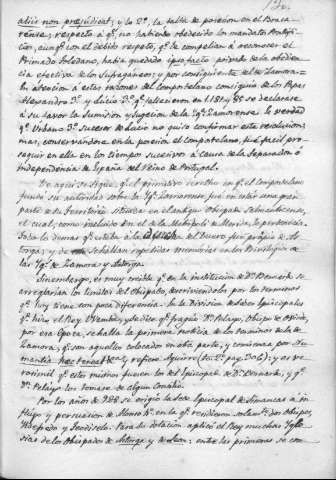 aliis non præjudicat; y lo 2º, la falta de posesion en el Braca-
rense; respecto á qº no habiendo obedecido los mandatos Pontifi-
cios, aunqº con el debido respeto, qº le compelian á reconocer el
Primado Toledano, habia quedado ipso facto privado de la obedien-
cia efectiva de los Sufraganeos; y por consiguiente del de Zamora-
En atencion á estas razones del Compostelano consiguió de los Papas
Alejandro 3º y Lucio 3º qº fallecieron en 1181 y 85 se declarase
á su favor la Sumision y Sujecion de la Ygª Zamorense. La verdad
qº Urbano 3º Sucesor de Lucio no quiso confirmar esta resolucion;
mas, conservandose en la posesion el Compostelano, fué facil pro-
seguir en ella en los tiempos sucesivos á causa de la Separacion é
independencia de España del Reino de Portugal.
De aqui se sigue qº el primitivo
fundó su autoridad sobre la Ygª Zamorense fué en estar una gran
parte de su Territorio situada en el antiguo Obispado Salmanticense,
el cual, como incluido en el de la Metropoli de Merida, le pertenecia.
Todo lo demas qº estaba á la del Duero fue propio de As-
torga; y de se hallan repetidas memorias en los Privilegios de
las Ygª de Zamora y Astorga.
Sinembargo, es muy creible qº en la institucion de Dº Bernardo se
arreglarian los limites del Obispado, describiendolos por los terminos
qº hoy tiene con poca diferencia. En la division de Sedes Episcopales
qº hizo el Rey Wamba, y se dice qº fraguó Dº Pelayo, Obispo de Oviedo,
por esa Epoca, se halla la primera Noticia de los terminos de la de
Zamora; qº son aquellos colocados en esta parte, y comienza por Nu-
mantia hæc teneat &c y refiere Aguirre (tº 2º pag. 306); y es ve-
rosimil qº estos mismos fuesen los del Episcopal de Dº Bernardo, y qº
Dº Pelayo los tomara de algun Concilio.
Por los años de 988 se erigió la Sede Episcopal de Simancas á in-
flujo y persuasion de Alonso 4º, en la qº residieron solamte dos Obispos,
Yldefredo y Teodisclo. Para su dotacion aplicó el Rey muchas Ygle-
sias de los Obispados de Astorga y de Leon: entre las primeras se com-